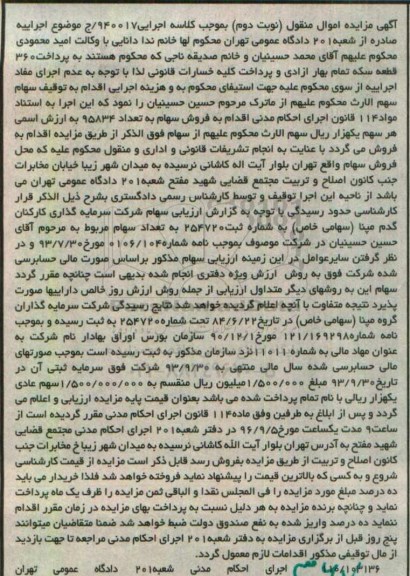 آگهی مزایده اموال منقول (نوبت دوم) بموجب کلاسه اجرایی۹۴۰۰۱۷/ج موضوع اجراییه
صادره از شعبه۲۰۱ دادگاه عمومی تهران محکوم لها خانم ندا دانایی با وکالت امید محمودی
محکوم علیهم آقای محمد حسینیان و خانم صدیقه ناجی که محکوم هستند به پرداخت۳۶۰
قطعه سکه تمام بهار آزادی و پرداخت کلیه خسارات قانونی لذا با توجه به عدم اجرای مفاد
اجراییه از سوی محکوم علیه جهت استیفای محکوم به و هزینه اجرایی اقدام به توقیف سهام
سهم الارث محکوم علیهم از ماترک مرحوم حسین حسینیان را نمود که این اجرا به استناد
مواد۱۱۴ قانون اجرای احکام مدنی اقدام به فروش سهام به تعداد ۹۵۸۳۴ به ارزش اسمی
هر سهم یکهزار ریال سهم الارث محکوم علیهم از سهام فوق الذکر از طریق مزایده اقدام به
فروش می گردد با عنایت به انجام تشریفات قانونی و اداری و منقول محکوم علیه که محل
فروش سهام واقع تهران بلوار آیت اله کاشانی نرسیده به میدان شهر زیبا خیابان مخابرات
جنب کانون اصلاح و تربیت مجتمع قضایی شهید مفتح شعبه۲۰۱ دادگاه عمومی تهران می
باشد از ناحیه این اجرا توقیف و توسط کارشناس رسمی دادگستری بشرح ذیل الذکر قرار
کارشناسی حدود رسیدگی با توجه به گزارش ارزیابی سهام شرکت سرمایه گذاری کارکنان
گدم مپنا (سهامی خاص) به شماره ثبت۲۵۴۷۲۰ به تعداد سهام مربوط به مرحوم آقای
حسین حسینیان در شرکت موصوف بموجب نامه شماره۰۱۰۶/۱۰۴مورخ۹۳/۷/۳۰ و در
نظر گرفتن سایرعوامل در این زمینه ارزیابی سهام مذکور براساس صورت مالی حسابرسی
شده شرکت فوق به روش ارزش ویژه دفتری انجام شده بدیهی است چنانچه مقرر گردد
سهام این به روشهای دیگر متداول ارزیابی از جمله روش ارزش روز خالص داراییها صورت
پذیرد نتیجه متفاوت با آنچه اعلام گردیده خواهد شد نتایج رسیدگی شرکت سرمایه گذاران
گروه مپنا (سهامی خاص) در تاریخ۸۴/۶/۲۲ تحت شماره۲۵۴۷۲۰ به ثبت رسیده و بموجب
نامه شماره۱۲۱/۱۶۹۲۹۸ مورخ۹۰/۱۲/۱ سازمان بورس اوراق بهادار نام شرکت به
عنوان مهاد مالی به شماره ۱۱۰۱۱نزد سازمان مذکور به ثبت رسیده است بموجب صورتهای
مالی حسابرسی شده سال مالی منتهی به ۹۳/۹/۳۰ شرکت فوق سرمایه ثبتی آن در
تاریخ۹۳/۹/۳۰ مبلغ ۱/۵۰۰/۰۰۰میلیون ریال منقسم به ۱/۵۰۰/۰۰۰/۰۰۰سهم عادی
یکهزار ریالی با نام تمام پرداخت شده می باشد بعنوان قیمت پایه مزایده ارزیابی و اعلام می
گردد و پس از ابلاغ به طرفین وفق ماده۱۱۴ قانون اجرای احکام مدنی مقرر گردیده است از
ساعت۹ مدت یکساعت مورخ۹۶/۹/۵ در دفتر شعبه۲۰۱ اجرای احکام مدنی مجتمع قضایی
شهید مفتح به آدرس تهران بلوار آیت الله کاشانی نرسیده به میدان شهر زیبا خ مخابرات جنب
کانون اصلاح و تربیت از طریق مزایده بفروش رسد قابل ذکر است مزایده از قیمت کارشناسی
شروع و به کسی که بالاترین قیمت را پیشنهاد نماید فروخته خواهد شد فلذا خریدار می باید
ده درصد مبلغ مورد مزایده را فی المجلس نقدا و الباقی ثمن مزایده را ظرف یک ماه پرداخت
نماید و چنانچه برنده مزایده به هر دلیل نسبت به پرداخت بهای مزایده در زمان مقرر اقدام
ننماید ده درصد واریز شده به نفع صندوق دولت ضبط خواهد شد ضمنا متقاضیان میتوانند
پنج روز قبل از برگزاری مزایده به دفتر شعبه۲۰۱ اجرای احکام مدنی مراجعه تا جهت بازدید
از مال توقیفی مذکور اقدامات لازم معمول گردد.
اجرای احکام مدنی شعبه۲۰۱ دادگاه عمومی تهران